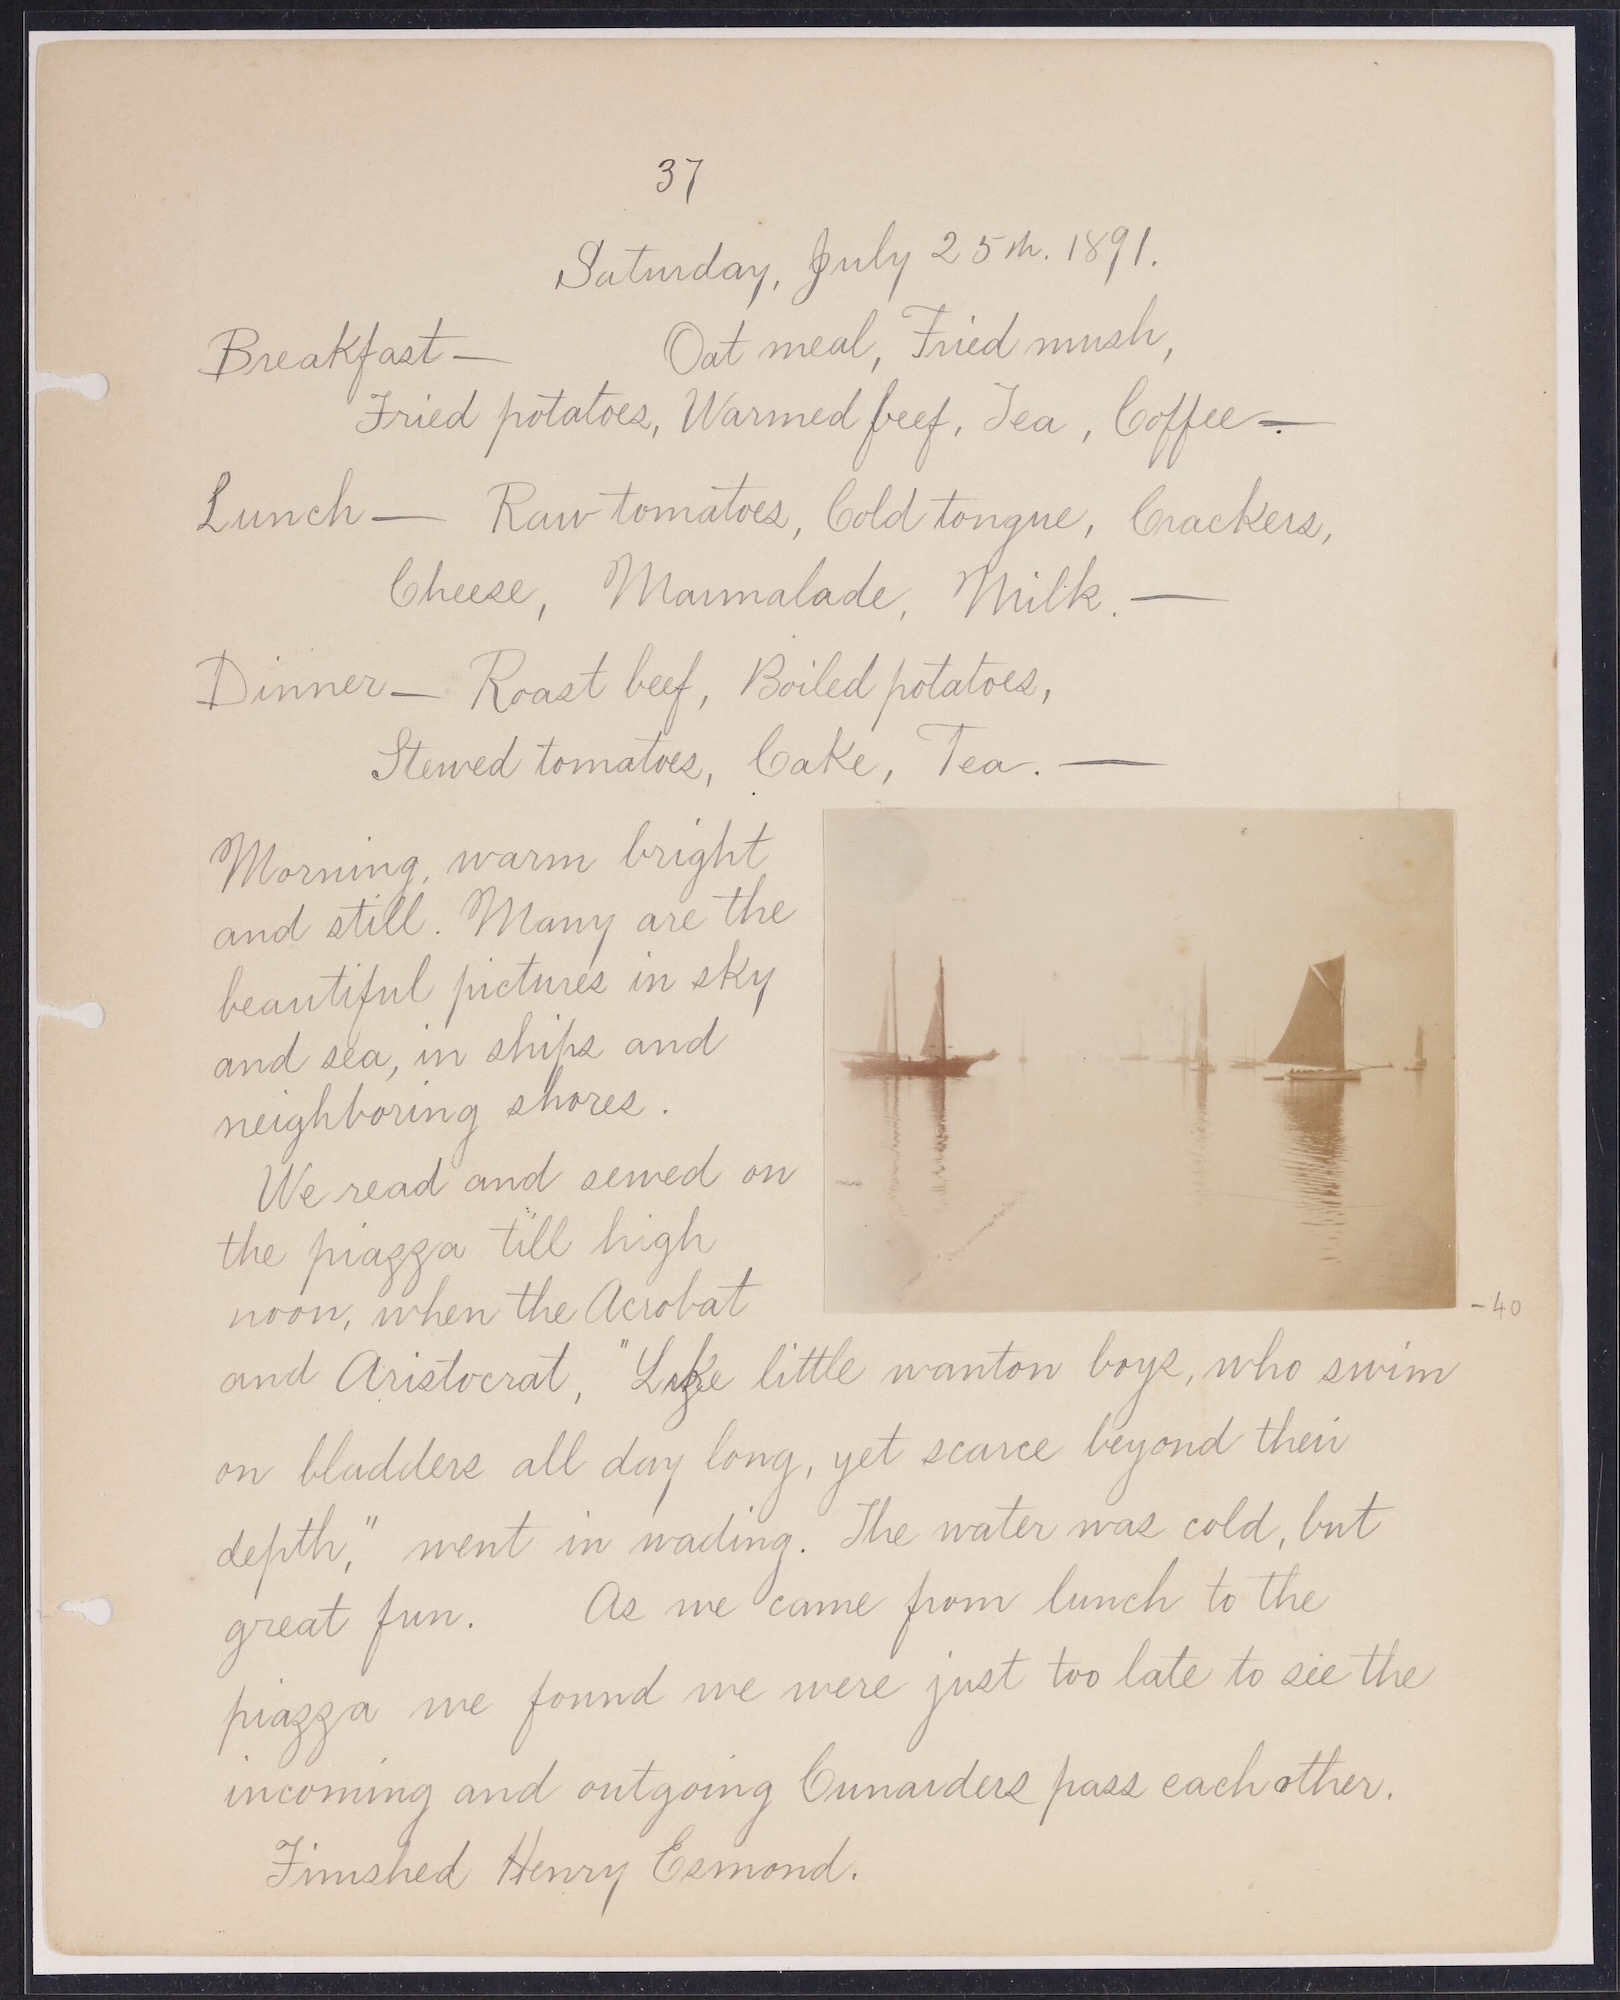 37
Saturday, July 25th. 1891.
Breakfast — Oat meal, Fried mush,
Fried potatoes, Warmed beef, Tea, Coffee —.
Lunch — Raw tomatoes, Cold tongue, Crackers,
Cheese, Marmalade, Milk. —
Dinner — Roast beef, Boiled potatoes,
Stewed tomatoes, Cake, Tea. —
Morning, warm bright
and still. Many are the
beautiful pictures in sky
and sea, in ships and
neighboring shores.
We read and sewed on
the piazza till high
noon, when the Acrobat
- 40
and Aristocrat, "Like little wanton boys, who swim
on bladders all day long, yet scarce beyond their
depth," went in wading. The water was cold, but
great fun. As we came from lunch to the
piazza we found we were just too late to see the
incoming and outgoing Cunarders pass each other.
Finished Henry Esmond.